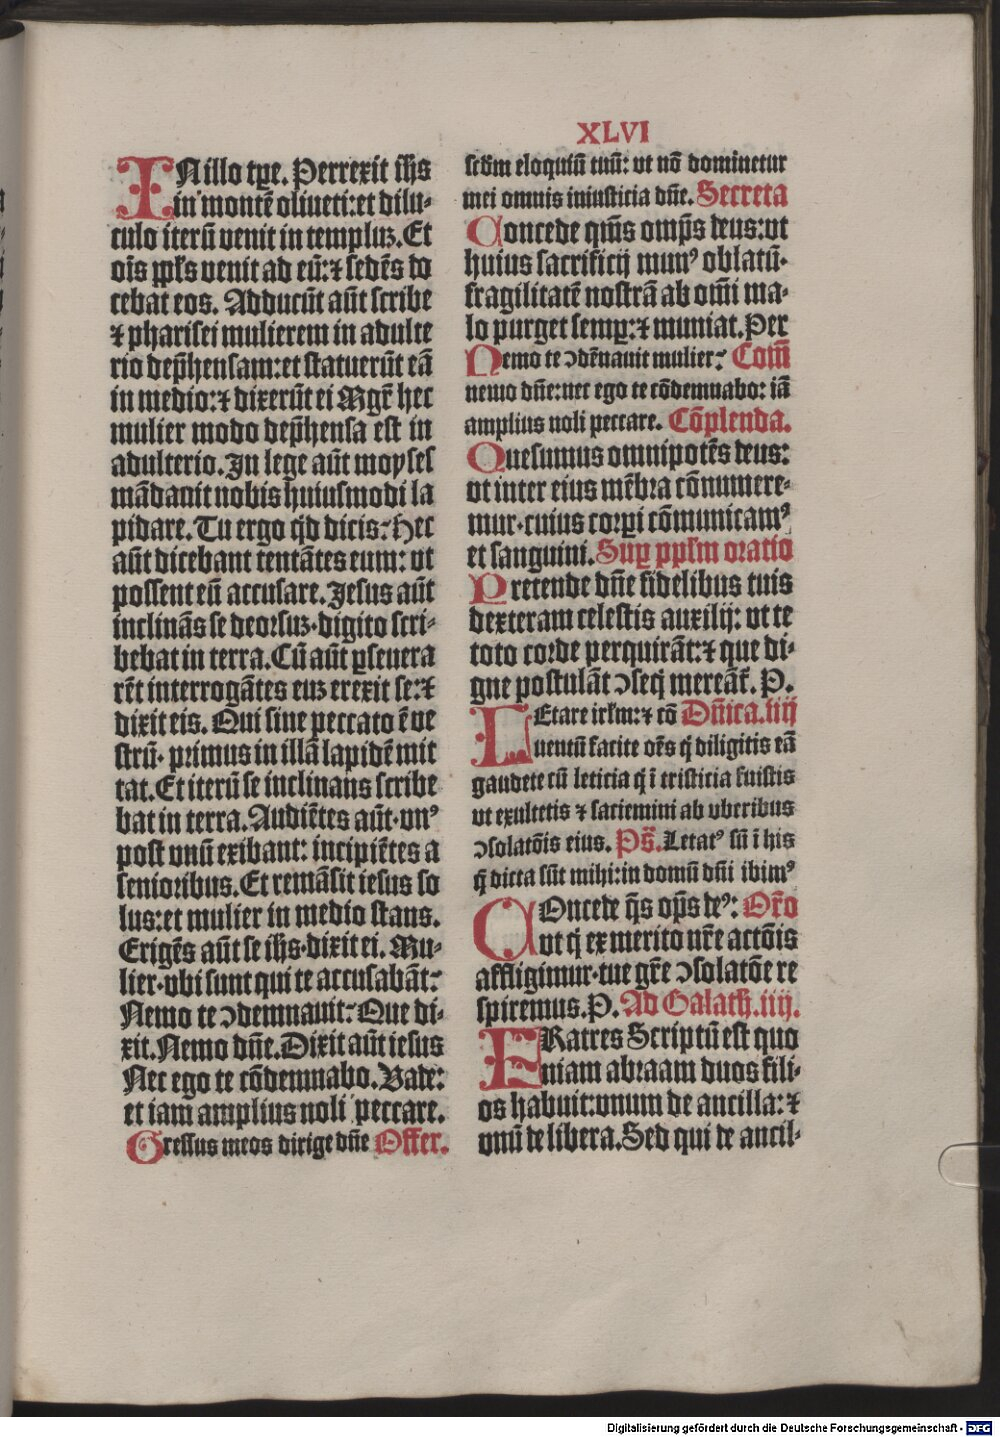 XLVI
IN illo tpe. Perrexit ihs
in montē oliueti: et dilu-
culo iterū venit in templuz. Et
oīs ppls venit ad eū: ⁊ sedēs do
cebat eos. Adducūt aūt scribe
⁊ pharisei mulierem in adulte
rio dep̄hensam: et statuerūt eā
in medio: ⁊ dixerūt ei Mgr̄ hec
mulier modo dep̄hensa est in
adulterio. In lege aūt moyses
mādauit nobis huiusmodi la
pidare. Tu ergo qd dicis? Hec
aūt dicebant tentātes eum: vt
possent eū accusare. Jesus aūt
inclinās se deorsuz. digito scri-
bebat in terra. Cū aūt ꝑseuera
rēt interrogātes euz erexit se: ⁊
dixit eis. Qui sine peccato ē ve
strū. primus in illā lapidē mit
tat. Et iterū se inclinans scribe
bat in terra. Audiētes aūt. vnꝰ
post vnū exibant: incipiētes a
senioribus. Et remāsit iesus so
lus: et mulier in medio stans.
Erigēs aūt se ihs. dixit ei. Mu-
lier. vbi sunt qui te accusabāt?
Nemo te ↄdemnauit? Que di-
xit. Nemo dn̄e. Dixit aūt iesus
Nec ego te cōdemnabo. Vade:
et iam amplius noli peccare.
Gressus meos dirige dn̄e Offer.
scd̄m eloquiū tuū: vt nō dominetur
mei omnis iniusticia dn̄e. Secreta
Concede qm̄s omp̄s deus: vt
huius sacrificij munꝰ oblatū.
fragilitatē nostrā ab om̄i ma-
lo purget semꝑ: ⁊ muniat. Per
Nemo te ↄdēnauit mulier? Com̄
nemo dn̄e: nec ego te cōdemnabo: iā
amplius noli peccare. Cōplenda.
Quesumus omnipotēs deus:
vt inter eius mēbra cōnumere-
mur. cuius corꝑi cōmunicamꝰ
et sanguini. Suꝑ pplm oratio
Pretende dn̄e fidelibus tuis
dexteram celestis auxilij: vt te
toto corde perquirāt: ⁊ que di-
gne postulāt ↄseq mereāt̄. P.
LEtare irlm: ⁊ cō Dn̄ica. iiij
uentū facite oēs q̇ diligitis eā
gaudete cū leticia q̇ ī tristicia fuistis
vt exultetis ⁊ saciemini ab vberibus
ↄsolatōis eius. Ps̄. Letatꝰ sū ī his
q̄ dicta sūt mihi: in domū dn̄i ibimꝰ
COncede q̄s op̄s deꝰ: Or̄o
vt q̇ ex merito nr̄e actōis
affligimur. tue gr̄e ↄsolatōe re
spiremus. P. Ad Galath. iiij.
FRatres Scriptū est quo
niam abraam duos fili-
os habuit: vnum de ancilla: ⁊
vnū de libera. Sed qui de ancil-
Digitalisierung gefördert durch die Deutsche Forschungsgemeinschaft - DFG